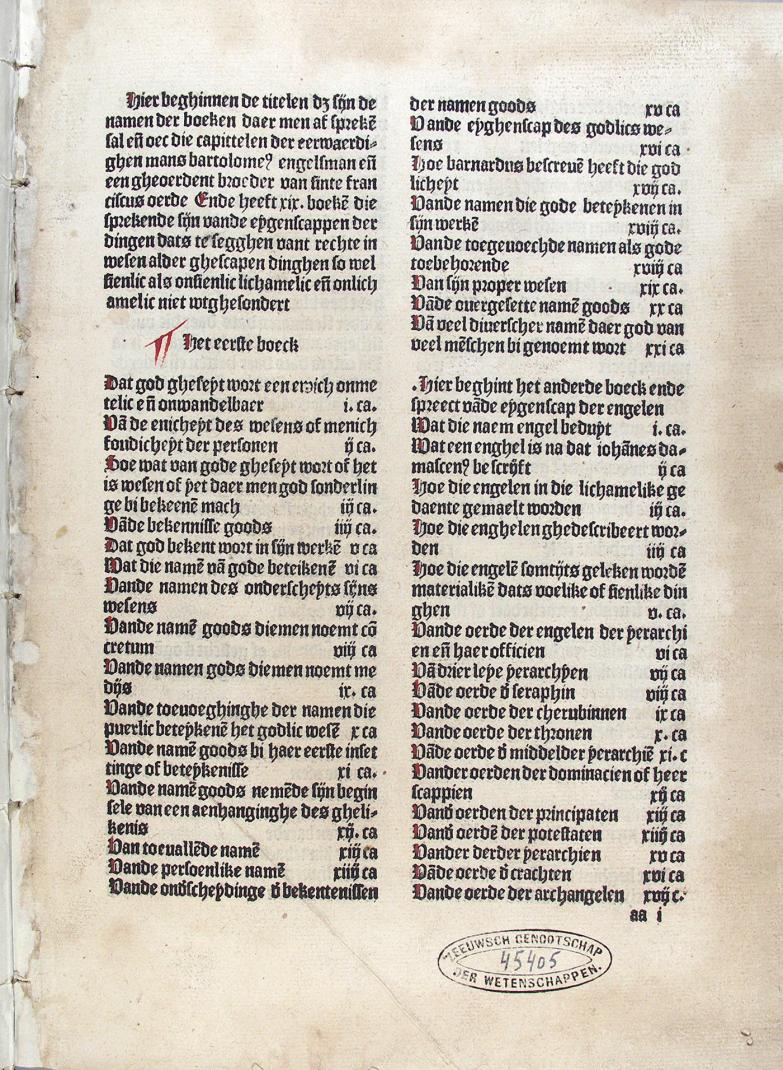 Hier beghinnen de titelen dꝫ sijn de
namen der boeken daer men af sprekē
sal eñ oec die capittelen der eerwaerdi-
ghen mans bartolomeꝰ engelsman eñ
een gheoerdent broeder van sinte fran
ciscus oerde Ende heeft xix. boekē die
sprekende sijn vande eygenscappen der
dingen dats te segghen want rechte in
wesen alder ghescapen dinghen so wel
sienlic als onsienlic lichamelic eñ onlich
amelic niet wtghesondert
¶ Het eerste boeck
Dat god gheseyt wort een ewich onme
telic eñ onwandelbaer i. ca.
Vā de enicheyt des wesens of menich
foudicheyt der personen ij ca.
Hoe wat van gode gheseyt wort of het
is wesen of yet daer men god sonderlin
ge bi bekeenē mach iij ca.
Vāde bekennisse goods iiij ca.
Dat god bekent wort in sijn werkē v ca
Wat die namē vā gode beteikenē vi ca
Vande namen des onderscheyts sijns
wesens vij ca.
Vande namē goods diemen noemt cō
cretum viij ca
Vande namen gods diemen noemt me
dijs ix. ca
Vande toevoeghinghe der namen die
puerlic beteykenē het godlic wesē x ca
Vande namē goods bi haer eerste inset
tinge of beteykenisse xi ca.
Vande namē goods nemēde sijn begin
sele van een aenhanginghe des gheli-
kenis xij. ca
Van toeuallēde namē xiij ca
Vande persoenlike namē xiiij ca
Vande ondscheydinge đ bekentenissen
der namen goods xv ca
Vande eyghenscap des godlics we-
sens xvi ca.
Hoe barnardus bescreuē heeft die god
licheyt xvij ca.
Vande namen die gode beteykenen in
sijn werkē xviij ca.
Vande toegeuoechde namen als gode
toebehorende xviij ca
Van sijn proper wesen xix ca.
Vāde ouergesette namē goods xx ca
Vā veel diuerscher namē daer god van
veel mēschen bi genoemt wort xxi ca
.Hier beghint het anderde boeck ende
spreect vāde eygenscap der engelen
Wat die naem engel beduyt i. ca.
Wat een enghel is na dat iohānes da-
mascenꝰ bescrijft ij ca
Hoe die engelen in die lichamelike ge
daente gemaelt worden iij ca.
Hoe die enghelen ghedescribeert wor-
den iiij ca
Hoe die engelē somtijts geleken wordē
materialikē dats voelike of sienlike din
ghen v. ca.
Vande oerde der engelen der yerarchi
en eñ haer officien vi ca
Vā drier leye yerarchyen vij ca
Vāde oerde đ seraphin viij ca
Vande oerde der cherubinnen ix ca
Vande oerde der thronen x. ca
Vāde oerde đ middelder yerarchiē xi. c
Vander oerden der dominacien of heer
scappien xij ca
Vanđ oerden der principaten xiij ca
Vanđ oerdē der potestaten xiiij ca
Vander derder yerarchien xv ca
Vāde oerde đ crachten xvi ca
Vande oerde der archangelen xvij c.
aa i
ZEEUWSCH GENOOTSCHAP
45405
DER WETENSCHAPPEN.